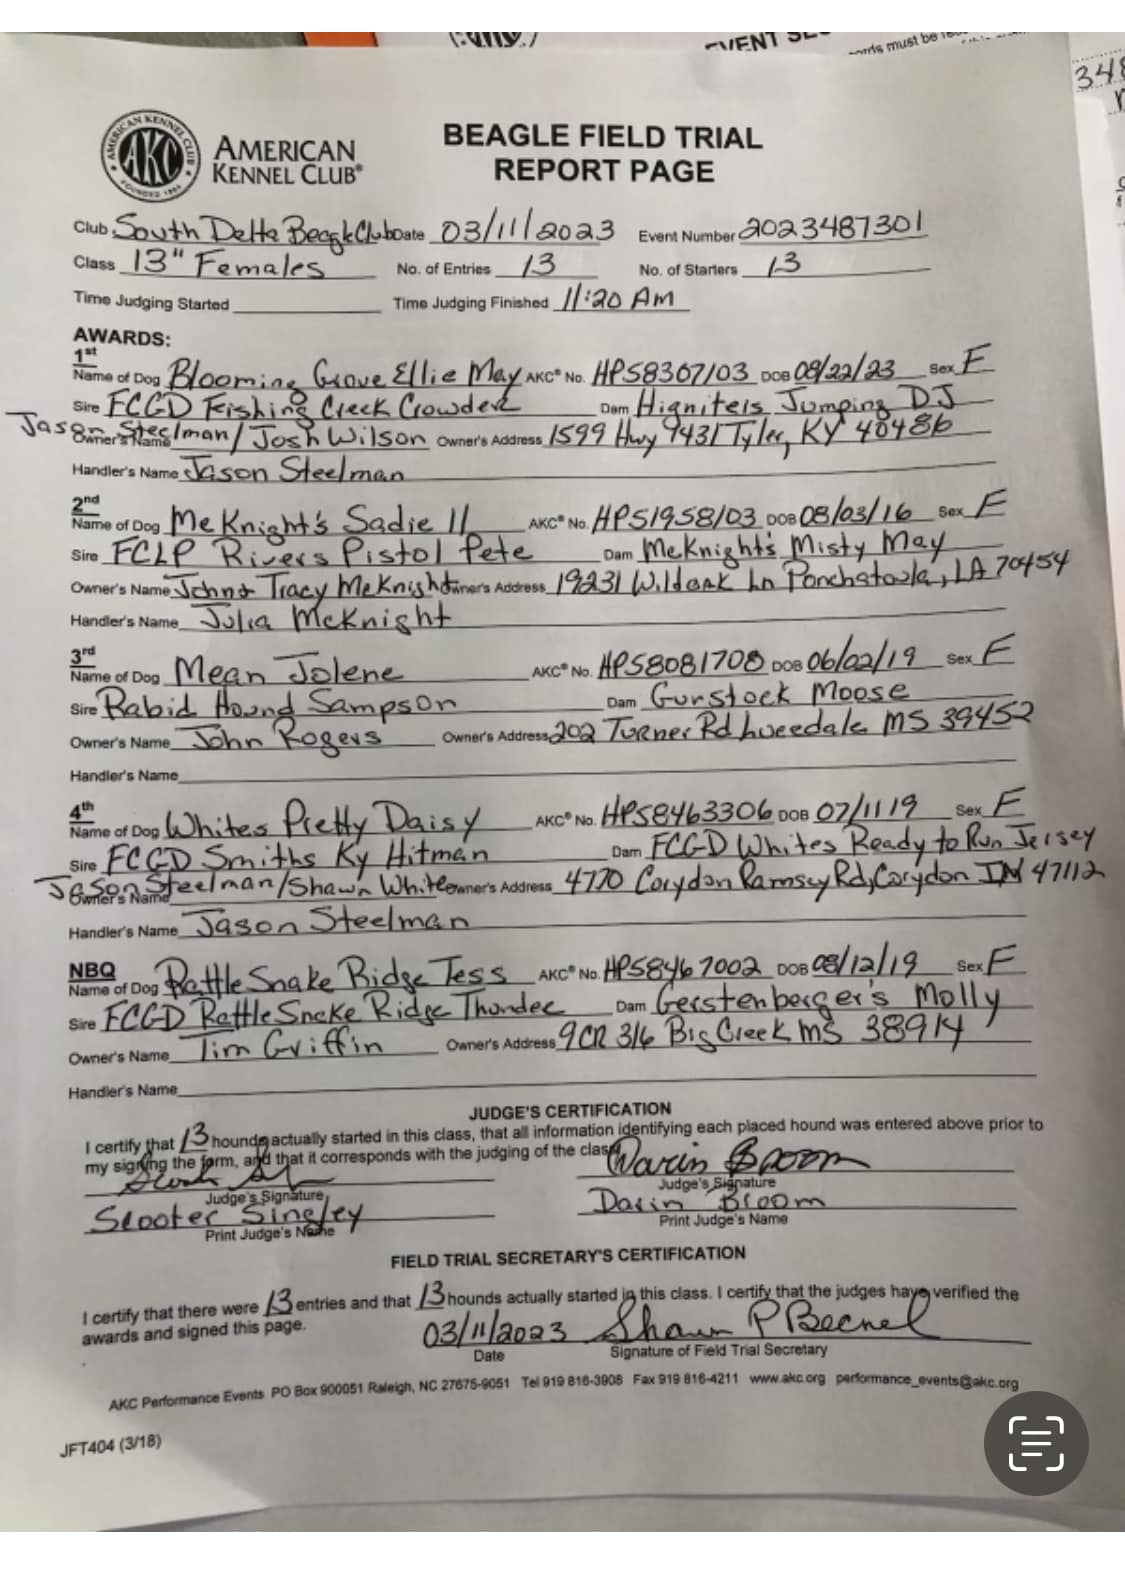 EVENT
must be
348
AMERICAN KENNEL CLUB
AKC
FOUNDED 1884
AMERICAN
KENNEL CLUB®
BEAGLE FIELD TRIAL
REPORT PAGE
Club South Delta Beagle Club Date 03/11/2023 Event Number 2023487301
Class 13" Females No. of Entries 13 No. of Starters 13
Time Judging Started Time Judging Finished 11:20 AM
AWARDS:
1st
Name of Dog Blooming Grove Ellie May AKC® No. HP58367103 DOB 08/22/23 Sex F
Sire FCGD Fishing Creek Crowder Dam Higniteis Jumping DJ
Owner's Name Jason Steelman/Josh Wilson Owner's Address 1599 Hwy 9431 Tyler, KY 40486
Handler's Name Jason Steelman
2nd
Name of Dog McKnight's Sadie II AKC® No. HP51958103 DOB 08/03/16 Sex F
Sire FCLP Rivers Pistol Pete Dam McKnight's Misty May
Owner's Name John & Tracy McKnight Owner's Address 19231 Wildoak Ln Ponchatoula, LA 70454
Handler's Name Julia McKnight
3rd
Name of Dog Mean Jolene AKC® No. HP58081708 DOB 06/02/19 Sex F
Sire Rabid Hound Sampson Dam Gunstock Moose
Owner's Name John Rogers Owner's Address 202 Turner Rd Lucedale MS 39452
Handler's Name
4th
Name of Dog Whites Pretty Daisy AKC® No. HP58463306 DOB 07/11/19 Sex F
Sire FCGD Smiths Ky Hitman Dam FCGD Whites Ready to Run Jersey
Owner's Name Jason Steelman/Shawn White Owner's Address 4770 Corydon Ramsey Rd, Corydon IN 47112
Handler's Name Jason Steelman
NBQ
Name of Dog Rattle Snake Ridge Tess AKC® No. HP58467002 DOB 08/12/19 Sex F
Sire FCGD Rattle Snake Ridge Thunder Dam Gerstenberger's Molly
Owner's Name Tim Griffin Owner's Address 9 CR 316 Big Creek MS 38914
Handler's Name
JUDGE'S CERTIFICATION
I certify that 13 hounds actually started in this class, that all information identifying each placed hound was entered above prior to
my signing the form, and that it corresponds with the judging of the class.
Darin Broom
Judge's Signature Judge's Signature
Scooter Singley Darin Broom
Print Judge's Name Print Judge's Name
FIELD TRIAL SECRETARY'S CERTIFICATION
I certify that there were 13 entries and that 13 hounds actually started in this class. I certify that the judges have verified the
awards and signed this page. 03/11/2023 Shawn P Becnel
Date Signature of Field Trial Secretary
AKC Performance Events PO Box 900051 Raleigh, NC 27675-9051 Tel 919 816-3908 Fax 919 816-4211 www.akc.org performance_events@akc.org
JFT404 (3/18)